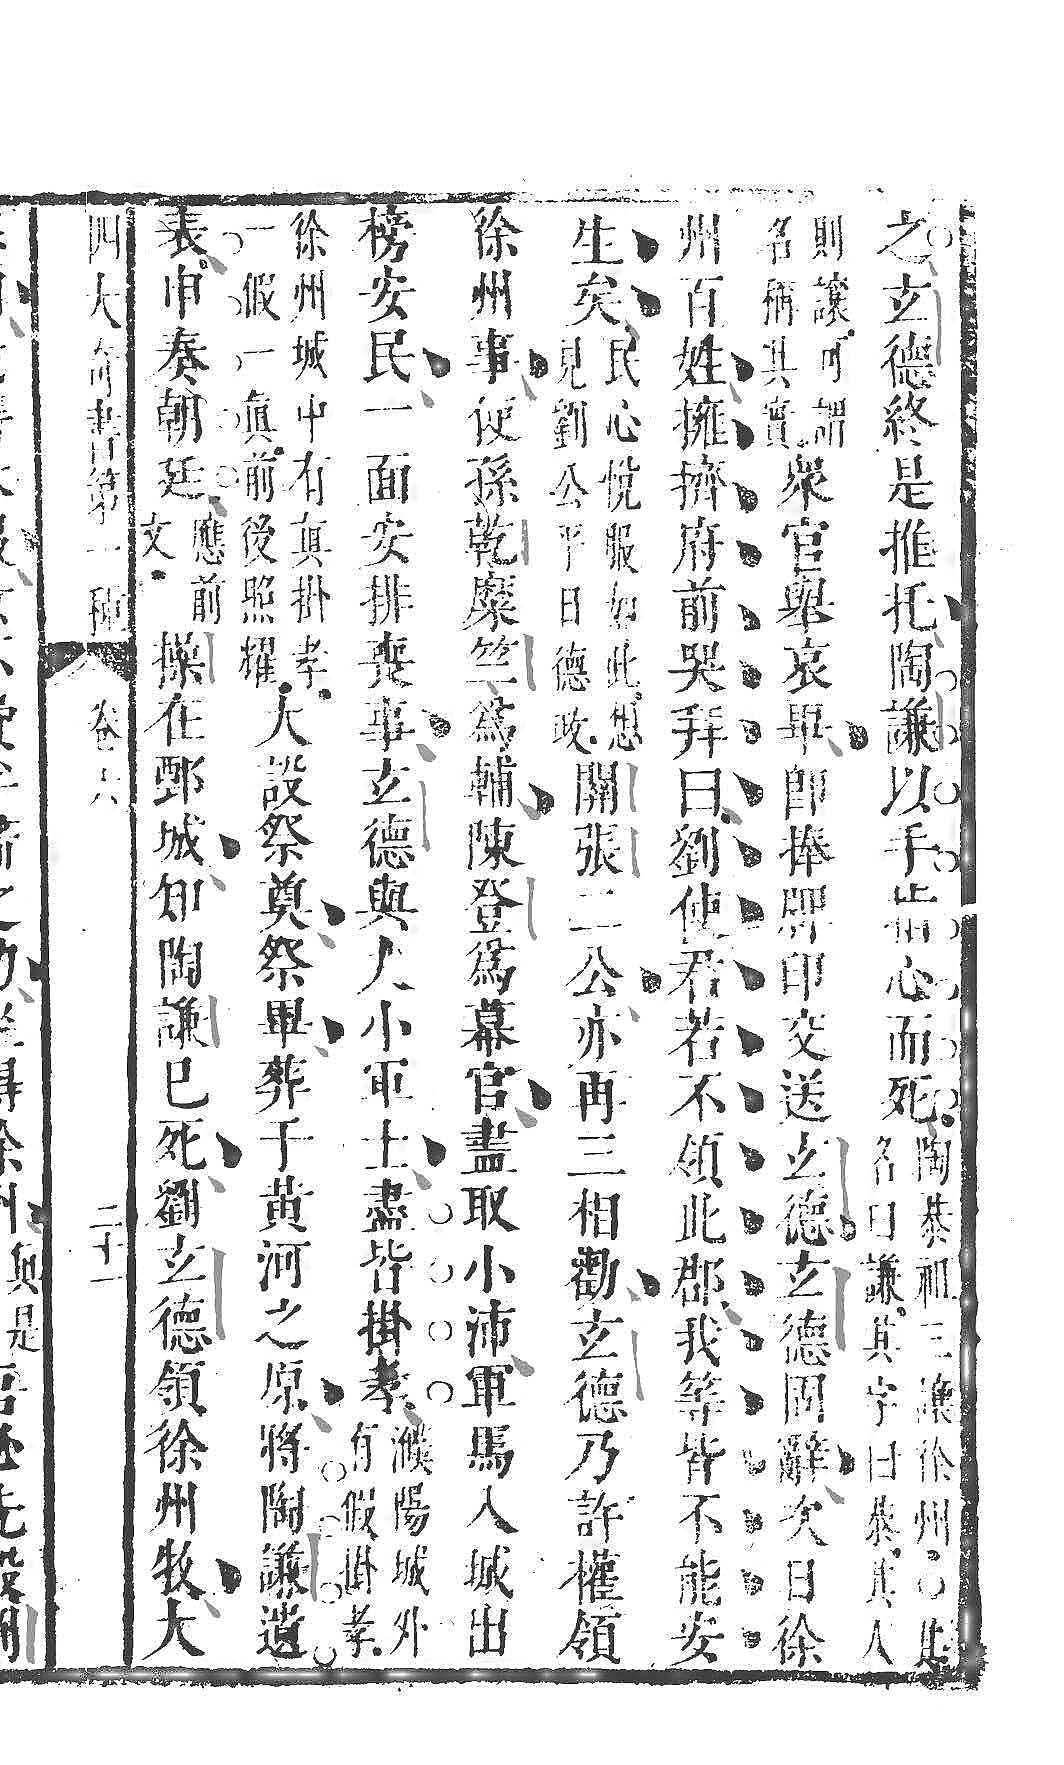 之玄德終是推托陶謙以手指心而死陶恭祖三讓徐州其名曰謙其字曰恭其人
則讓可謂名稱其實衆官舉哀畢即捧牌印交送玄德玄德固辭次日徐
州百姓擁擠府前哭拜曰劉使君若不領此郡我等皆不能安
生矣民心悅服如此想見劉公平日德政關張二公亦再三相勸玄德乃許權領
徐州事使孫乾糜竺爲輔陳登爲幕官盡取小沛軍馬入城出
榜安民一面安排喪事玄德與大小軍士盡皆掛孝濮陽城外有假掛孝
徐州城中有真掛孝一假一真前後照耀大設祭奠祭畢葬于黄河之原將陶謙遺
表申奏朝廷應前文操在鄄城知陶謙已死劉玄德領徐州牧大
四大奇書第一種 卷六 二十一